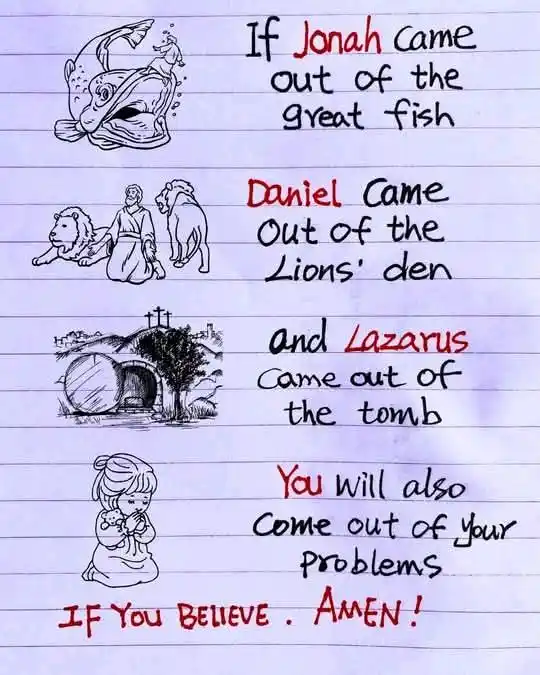 If Jonah came
out of the
great fish
Daniel Came
Out of the
Lions' den
and Lazarus
Came out of
the tomb
You will also
Come out of your
Problems
IF YOU BELIEVE. AMEN!